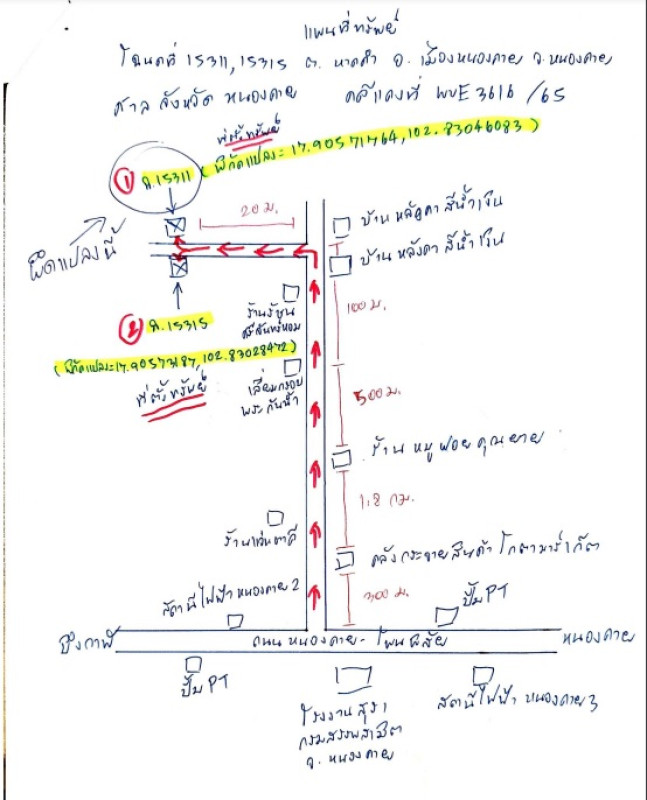 แผนที่ทรัพย์
โฉนดที่ 15311, 15315 ต. หาดคำ อ. เมืองหนองคาย จ. หนองคาย
ศาล จังหวัด หนองคาย คดีแดงที่ ผบE 3616 /65
ที่ตั้งทรัพย์
① ฉ.15311 (พิกัดแปลง= 17.90571764, 102.83046083)
20 ม.
บ้าน หลังคา สีน้ำเงิน
บ้าน หลังคา สีน้ำเงิน
แปลงนี้
100 ม.
② ฉ.15315
(พิกัดแปลง=17.90573187, 102.83028472)
ที่ตั้งทรัพย์
เลี่ยมกรอบ
พระกันน้ำ
500 ม.
ร้าน หมูฝอย คุณยาย
1.8 กม.
คลังกระจายสินค้า โกตามาร์เก็ต
300 ม.
สถานีไฟฟ้า หนองคาย 2
ปั๊ม PT
บึงกาฬ
ถนน หนองคาย - โพนพิสัย
หนองคาย
ปั๊ม PT
โรงงาน สุรา
กรมสรรพสามิต
จ. หนองคาย
สถานีไฟฟ้า หนองคาย 3